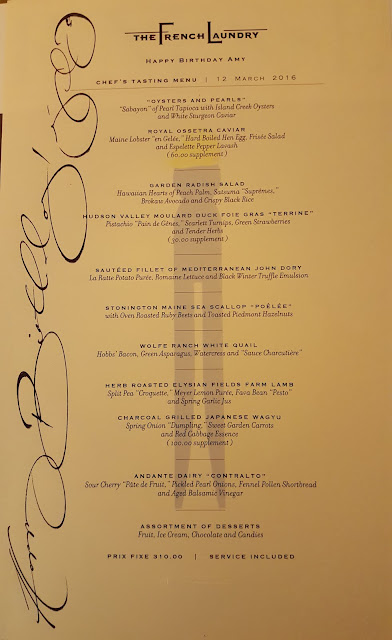 THE FRENCH LAUNDRY
HAPPY BIRTHDAY AMY
CHEF'S TASTING MENU | 12 MARCH 2016
"OYSTERS AND PEARLS"
"Sabayon" of Pearl Tapioca with Island Creek Oysters
and White Sturgeon Caviar
ROYAL OSSETRA CAVIAR
Maine Lobster "en Gelée," Hard Boiled Hen Egg, Frisée Salad
and Espelette Pepper Lavash
( 60.00 supplement )
GARDEN RADISH SALAD
Hawaiian Hearts of Peach Palm, Satsuma "Suprêmes,"
Brokaw Avocado and Crispy Black Rice
HUDSON VALLEY MOULARD DUCK FOIE GRAS "TERRINE"
Pistachio "Pain de Gênes," Scarlet Turnips, Green Strawberries
and Tender Herbs
( 30.00 supplement )
SAUTÉED FILLET OF MEDITERRANEAN JOHN DORY
La Ratte Potato Purée, Romaine Lettuce and Black Winter Truffle Emulsion
STONINGTON MAINE SEA SCALLOP "POÊLÉE"
with Oven Roasted Ruby Beets and Toasted Piedmont Hazelnuts
WOLFE RANCH WHITE QUAIL
Hobbs' Bacon, Green Asparagus, Watercress and "Sauce Charcutière"
HERB ROASTED ELYSIAN FIELDS FARM LAMB
Split Pea "Croquette," Meyer Lemon Purée, Fava Bean "Pesto"
and Spring Garlic Jus
CHARCOAL GRILLED JAPANESE WAGYU
Spring Onion "Dumpling," Sweet Garden Carrots
and Red Cabbage Essence
( 100.00 supplement )
ANDANTE DAIRY "CONTRALTO"
Sour Cherry "Pâte de Fruit," Pickled Pearl Onions, Fennel Pollen Shortbread
and Aged Balsamic Vinegar
ASSORTMENT OF DESSERTS
Fruit, Ice Cream, Chocolate and Candies
PRIX FIXE 310.00 | SERVICE INCLUDED